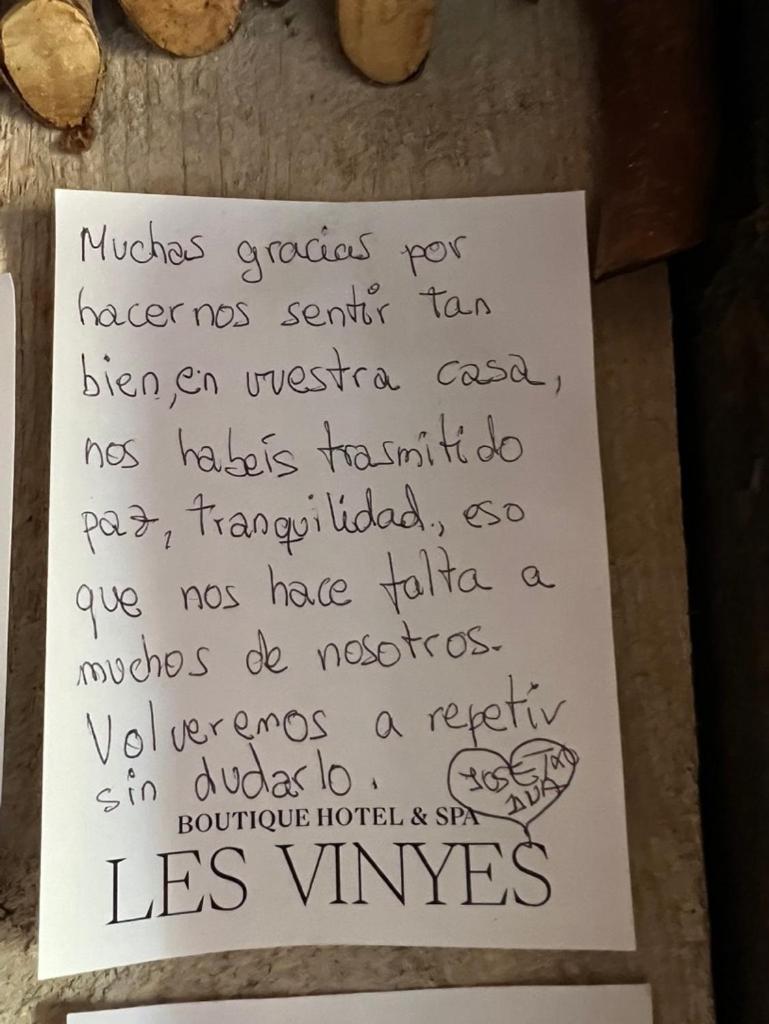 Muchas gracias por
hacernos sentir tan
bien, en vuestra casa,
nos habeís trasmitido
paz, tranquilidad., eso
que nos hace falta a
muchos de nosotros.
Volveremos a repetir
sin dudarlo.
BOUTIQUE HOTEL & SPA
LES VINYES